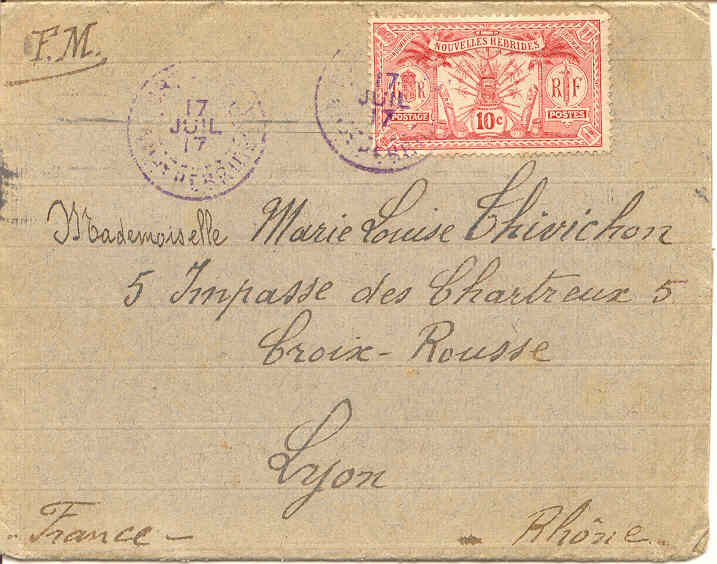 F.M.
17
JUIL
17
17
JUIL
17
NOUVELLES HEBRIDES
R
RF
POSTAGE
10c
POSTES
Mademoiselle Marie Louise Chivichon
5 Impasse des Chartreux 5
Croix-Rousse
Lyon
France - Rhône